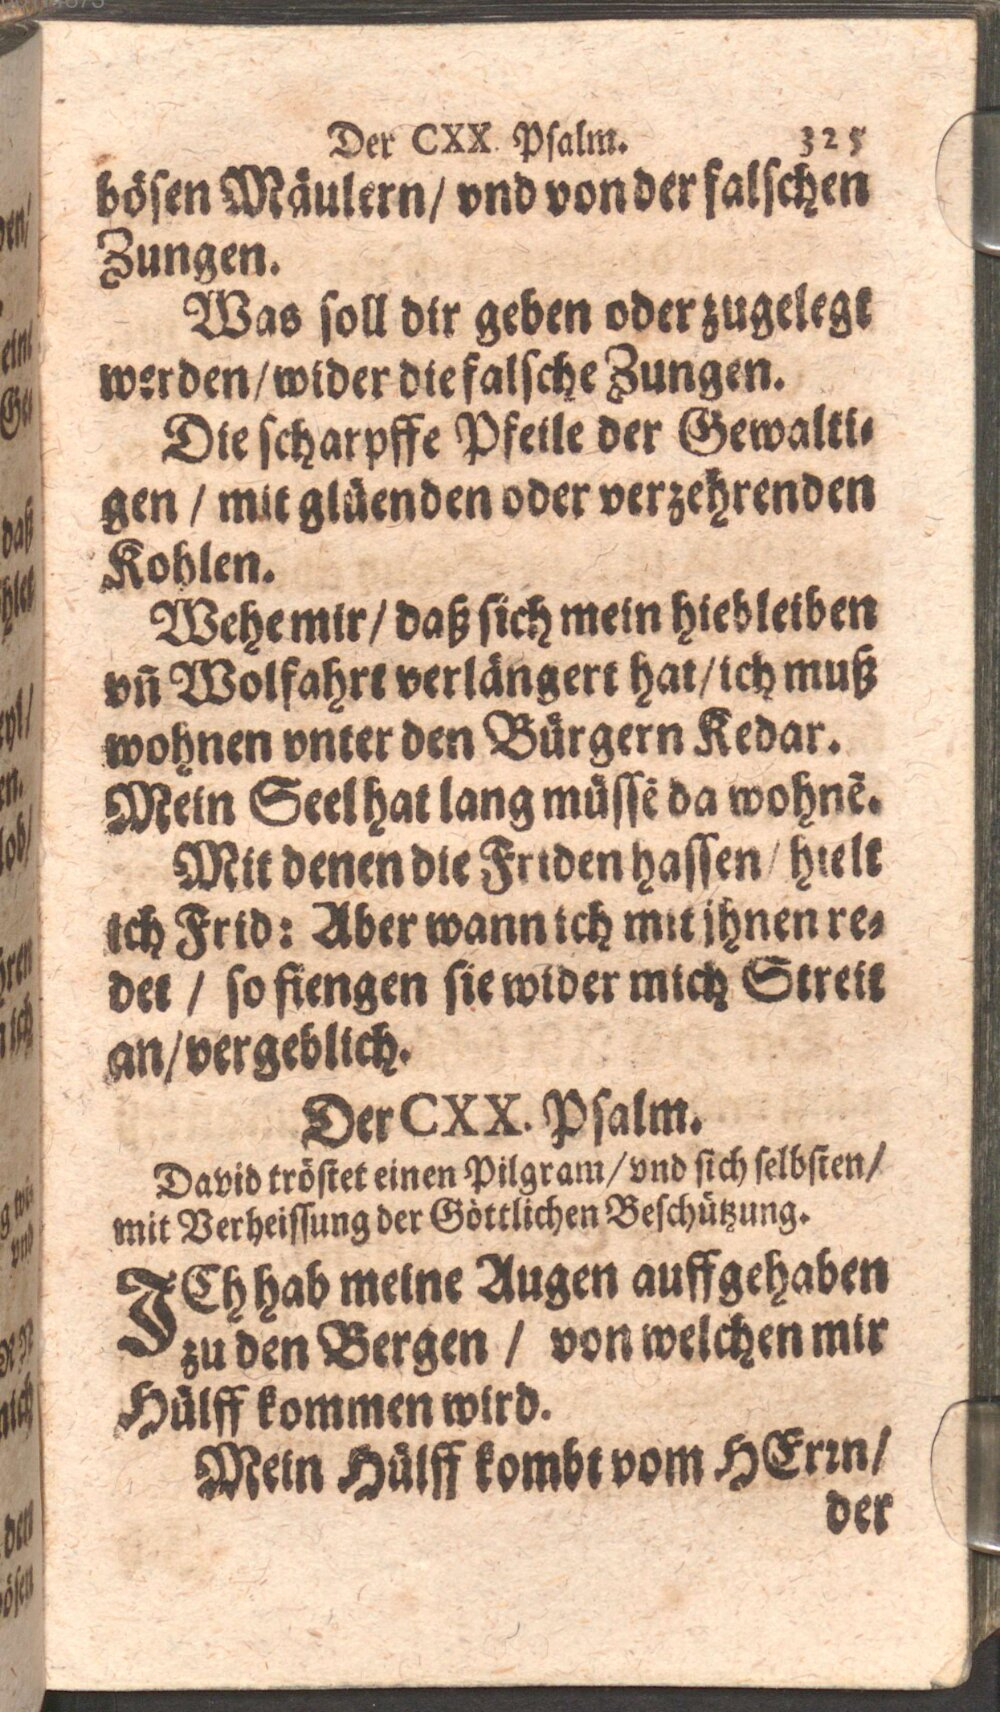 Der CXX. Psalm. 325
bösen Mäulern/ vnd von der falschen
Zungen.
Was soll dir geben oder zugelegt
werden/wider die falsche Zungen.
Die scharpffe Pfeile der Gewalti-
gen / mit glüenden oder verzehrenden
Kohlen.
Wehe mir/ daß sich mein hiebleiben
vñ Wolfahrt verlängert hat/ich muß
wohnen vnter den Bürgern Kedar.
Mein Seel hat lang müssē da wohnē.
Mit denen die Friden hassen/ hielt
ich Frid: Aber wann ich mit jhnen re-
det / so fiengen sie wider mich Streit
an/vergeblich.
Der CXX. Psalm.
David tröstet einen Pilgram/vnd sich selbsten/
mit Verheissung der Göttlichen Beschützung.
ICh hab meine Augen auffgehaben
zu den Bergen / von welchen mir
Hülff kommen wird.
Mein Hülff kombt vom HErrn/
der